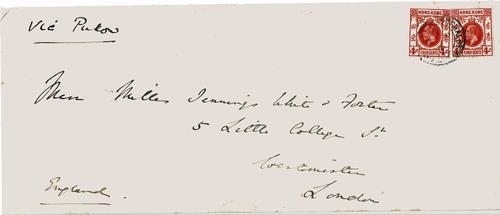 Via Pukow
HONG KONG HONG KONG
4c FOUR CENTS 4c 4c FOUR CENTS 4c
Messrs Milles Jennings White & Foster
5 Little College St
Westminster
London
England